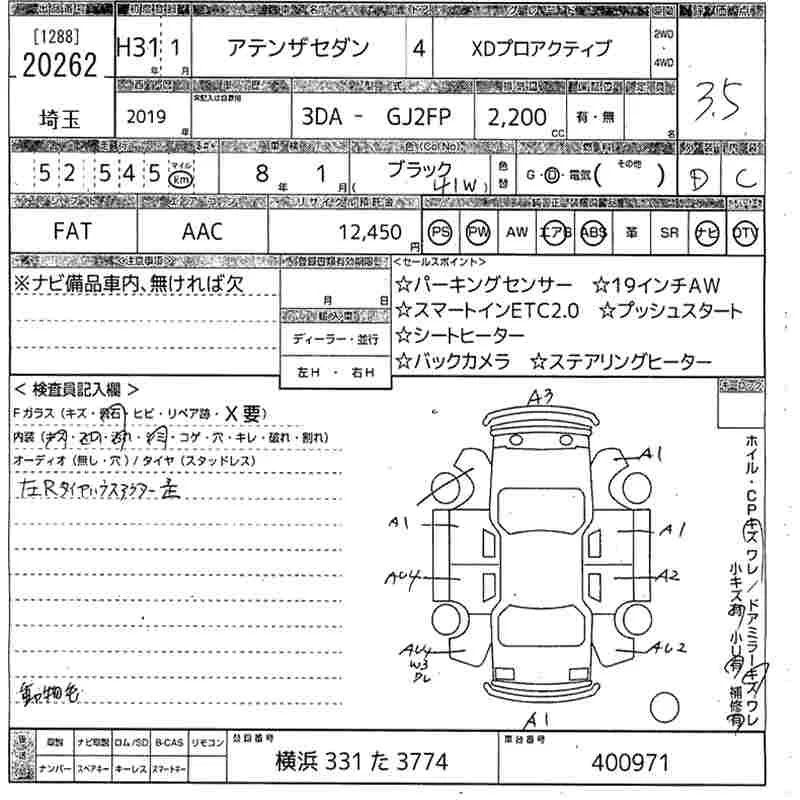 [1288]
20262
H31 年 1 月
アテンザセダン
4
XDプロアクティブ
2WD
・
4WD
3.5
埼玉
2019 年
3DA - GJ2FP
2,200 CC
有・無
名
52 545 マイル km
8 年 1 月
色(CoNo)
ブラック
( 41W )
色替
G・D・電気( その他 )
D
C
FAT
AAC
リサイクル預託金
12,450 円
PS PW AW エアB ABS 革 SR ナビ DTV
<注意事項>
※ナビ備品車内、無ければ欠
登録書類有効期限
月 日
輸入車
ディーラー・並行
左H ・ 右H
<セールスポイント>
☆パーキングセンサー ☆19インチAW
☆スマートインETC2.0 ☆プッシュスタート
☆シートヒーター
☆バックカメラ ☆ステアリングヒーター
< 検査員記入欄 >
Fガラス(キズ・飛石・ヒビ・リペア跡・X要)
・コゲ・穴・キレ・破れ・割れ)
オーディオ(無し・穴)/タイヤ(スタッドレス)
動物毛
A3
A1
A1
A1
AU4
A2
AU4
W3
AU2
A1
ホイル・CPキズ ワレ / ドアミラーキズワレ
小キズ有 小U有 補修有
ナビ取説 ロム/SD B-CAS リモコン
ナンバー スペアキー キーレス スマートキー
登録番号
横浜 331 た 3774
車台番号
400971